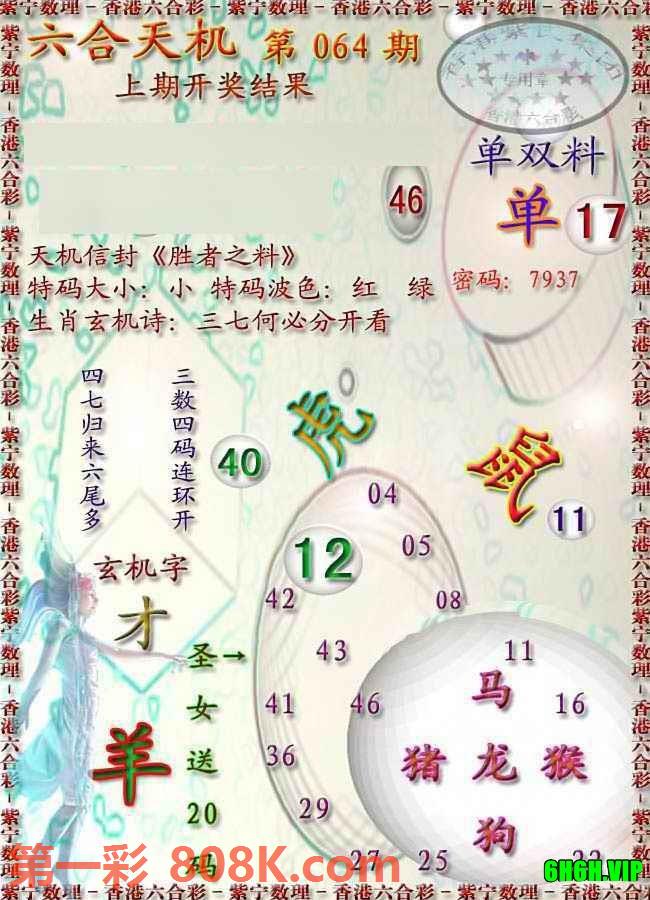 紫宁数理-香港六合彩-紫宁数理-香港六合彩-紫宁数理-香港六合彩
六合天机 第 064 期
上期开奖结果
专用章
香港六合彩
单双料
46
单 17
天机信封《胜者之料》
特码大小：小 特码波色：红 绿
密码：7937
生肖玄机诗：三七何必分开看
四七归来六尾多
三数四码连环开
40
虎
鼠
11
04
12
05
玄机字
42
08
才
圣女送20码
→
43
11
马
41
46
16
羊
36
猪 龙 猴
29
狗
27
25
第一彩 808K.com
6H6H.VIP
紫宁数理-香港六合彩-紫宁数理-香港六合彩-紫宁数理-香港六合彩